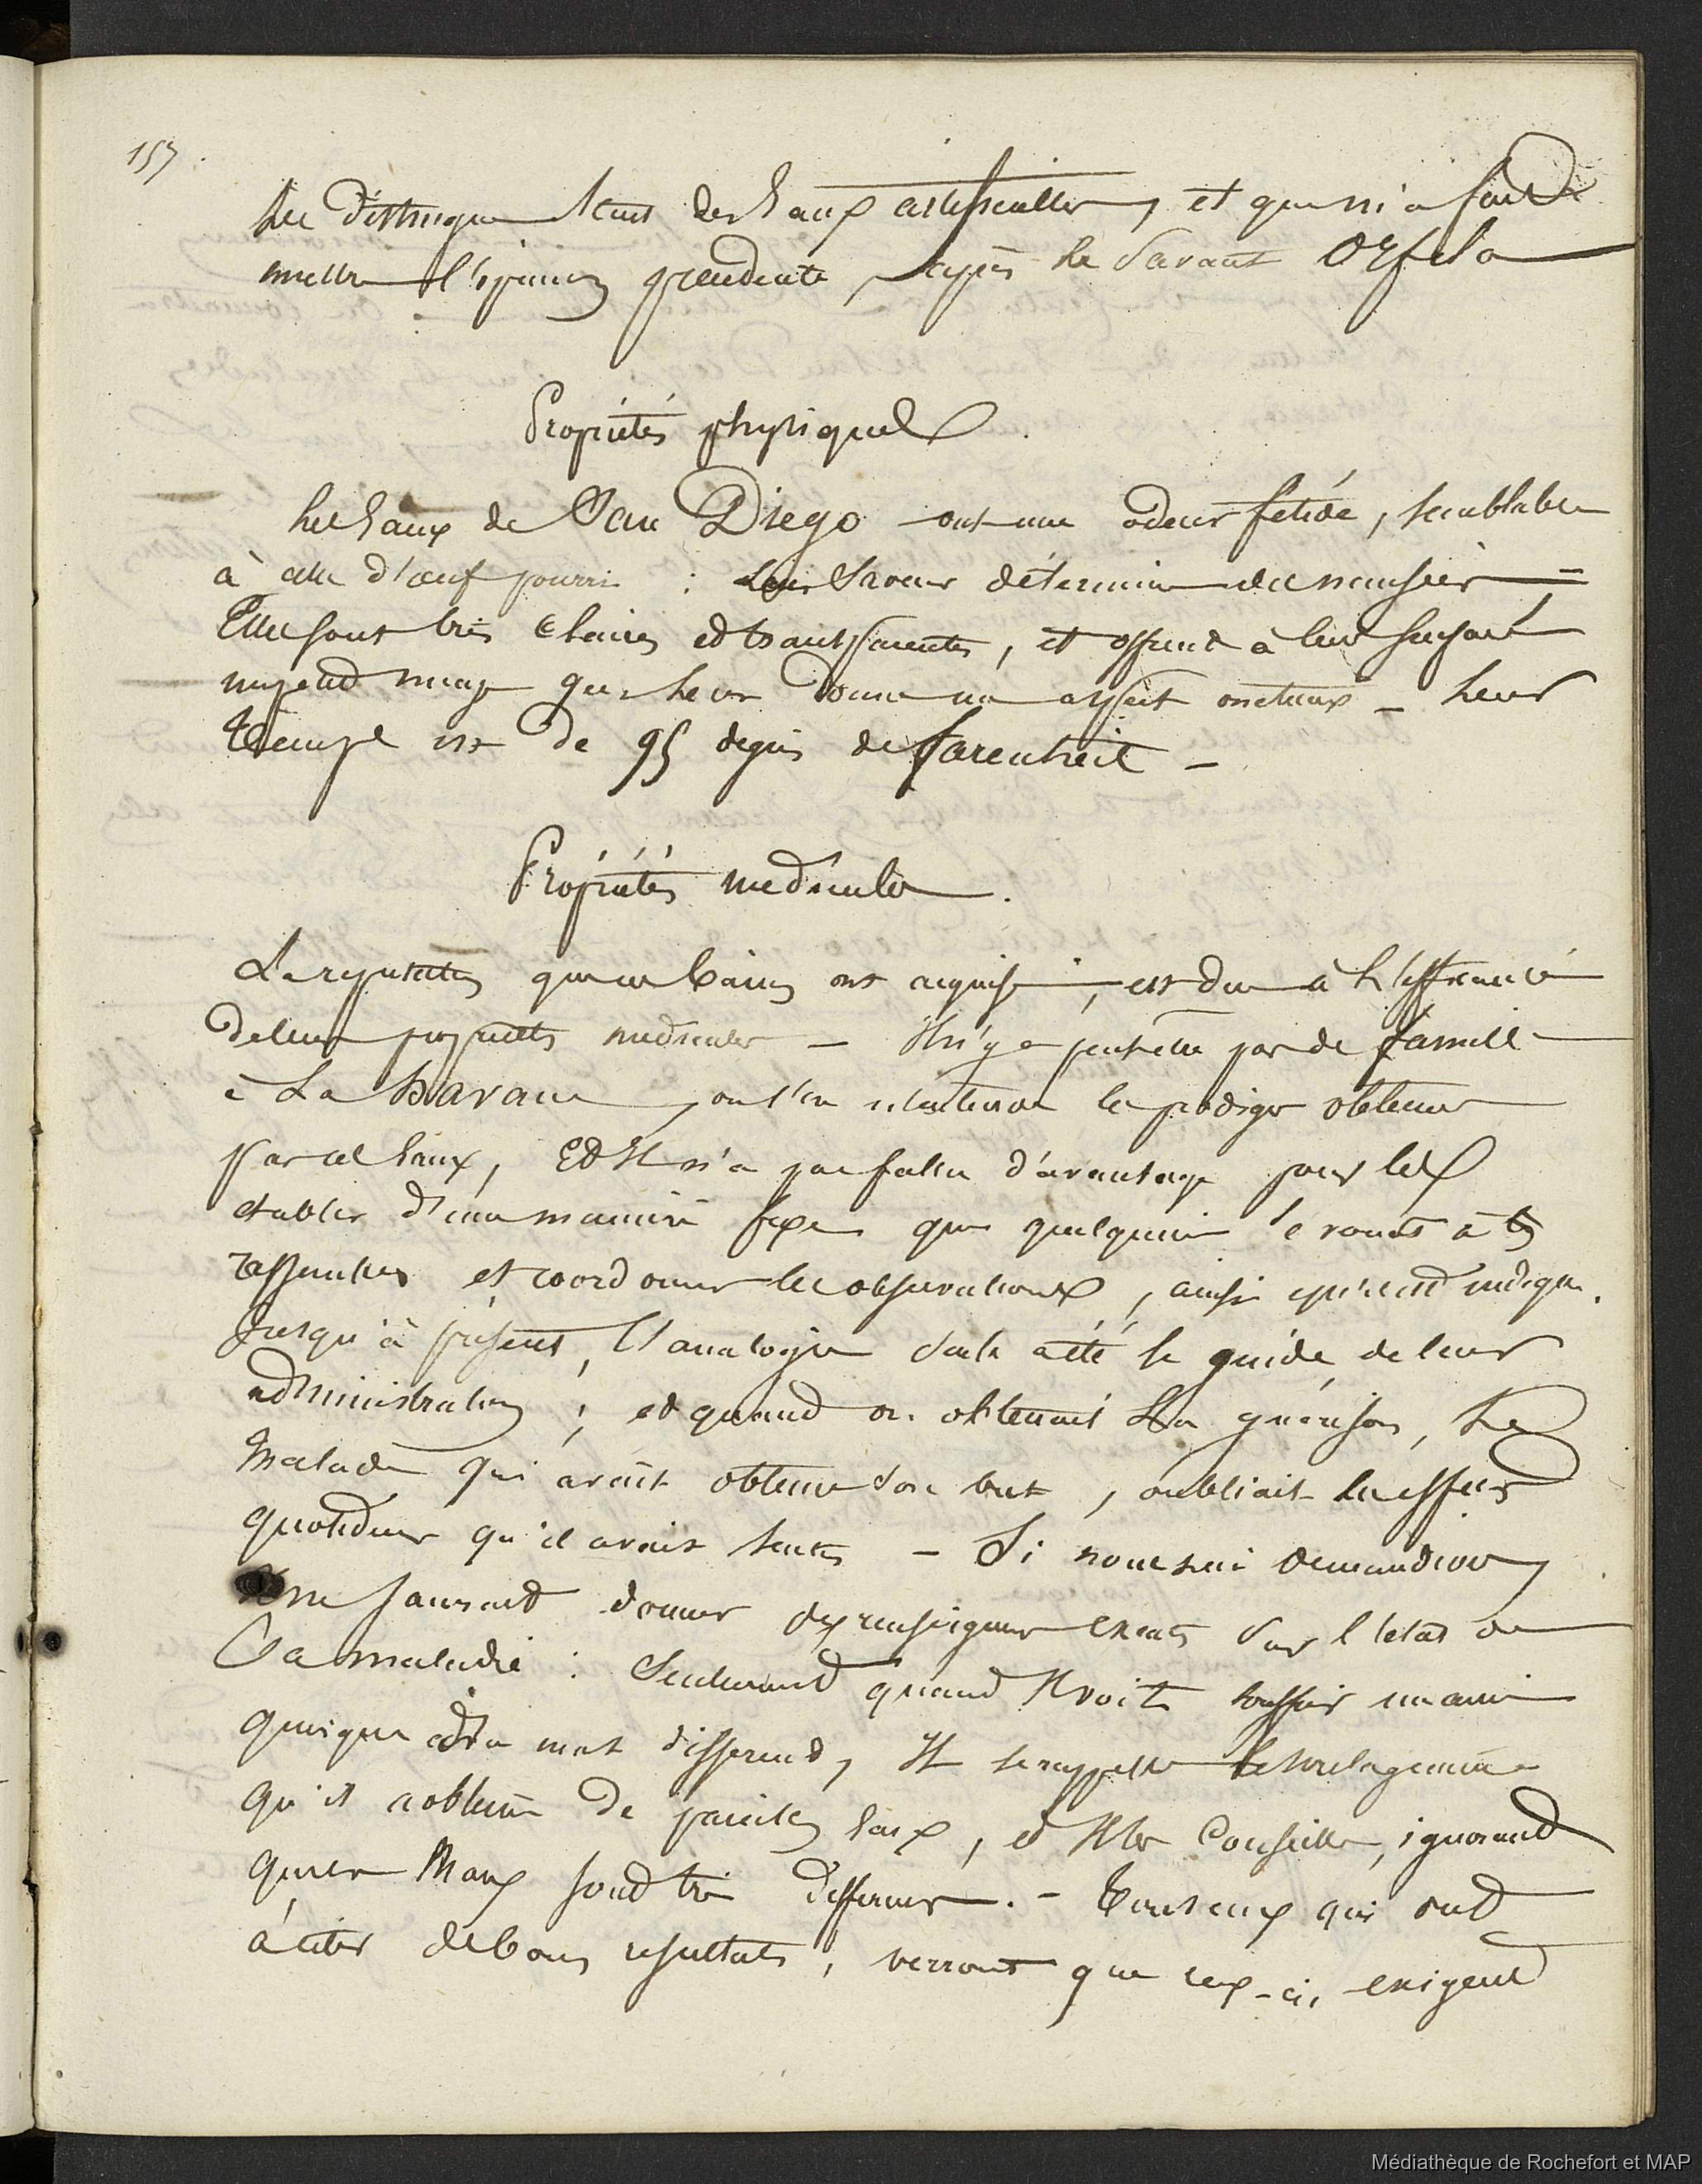 157.
les distingue des Eaux artificielles, et que m'a fait
mettre l'opinion precedente, d'après le Savant Orfila
Propriétés physiques.
Les Eaux de San Diego ont une odeur fetide, semblable
à celle d'œuf pourri : Leur Saveur détermine des nausées =
Elles sont très claires et transparentes, et offrent à leur surface
un petit nuage qui leur donne un aspect onctueux _ Leur
Temp.e est de 95 degrés de farentheit _
Propriétés medicales.
La reputation que ces bains ont acquise, est due à L'efficacité
de leurs propriétés medicales _ Il n'y a peut être pas de famille
à La Havane, où l'on n'entende les prodiges obtenus
par ces Eaux, Et Il n'a pas fallu d'avantage pour les
etablir d'une manière fixe que quelqu'un
rassembler et coordonner les observations, ainsi qu'il est indiqué.
Jusqu'à présent, L'analogie seule a été le guide de leur
administration ; et quand on obtenait La guérison, Le
Malade qui avait obtenu son but, oubliait les effets
quotidiens qu'il avait sentis _ Si nous lui demandions,
Il ne saurait donner des renseignem.s exacts sur l'état de
Sa maladie : Seulement quand Il voit souffrir un ami
quoique d'un mal different, Il se rappelle le soulagement
qu'il a obtenu de pareilles Eaux, et Il les Conseille, ignorant
que les Maux sont très différents. _ Tous ceux qui ont
à citer de bons resultats, verront que ceux-ci, exigent
Médiathèque de Rochefort et MAP